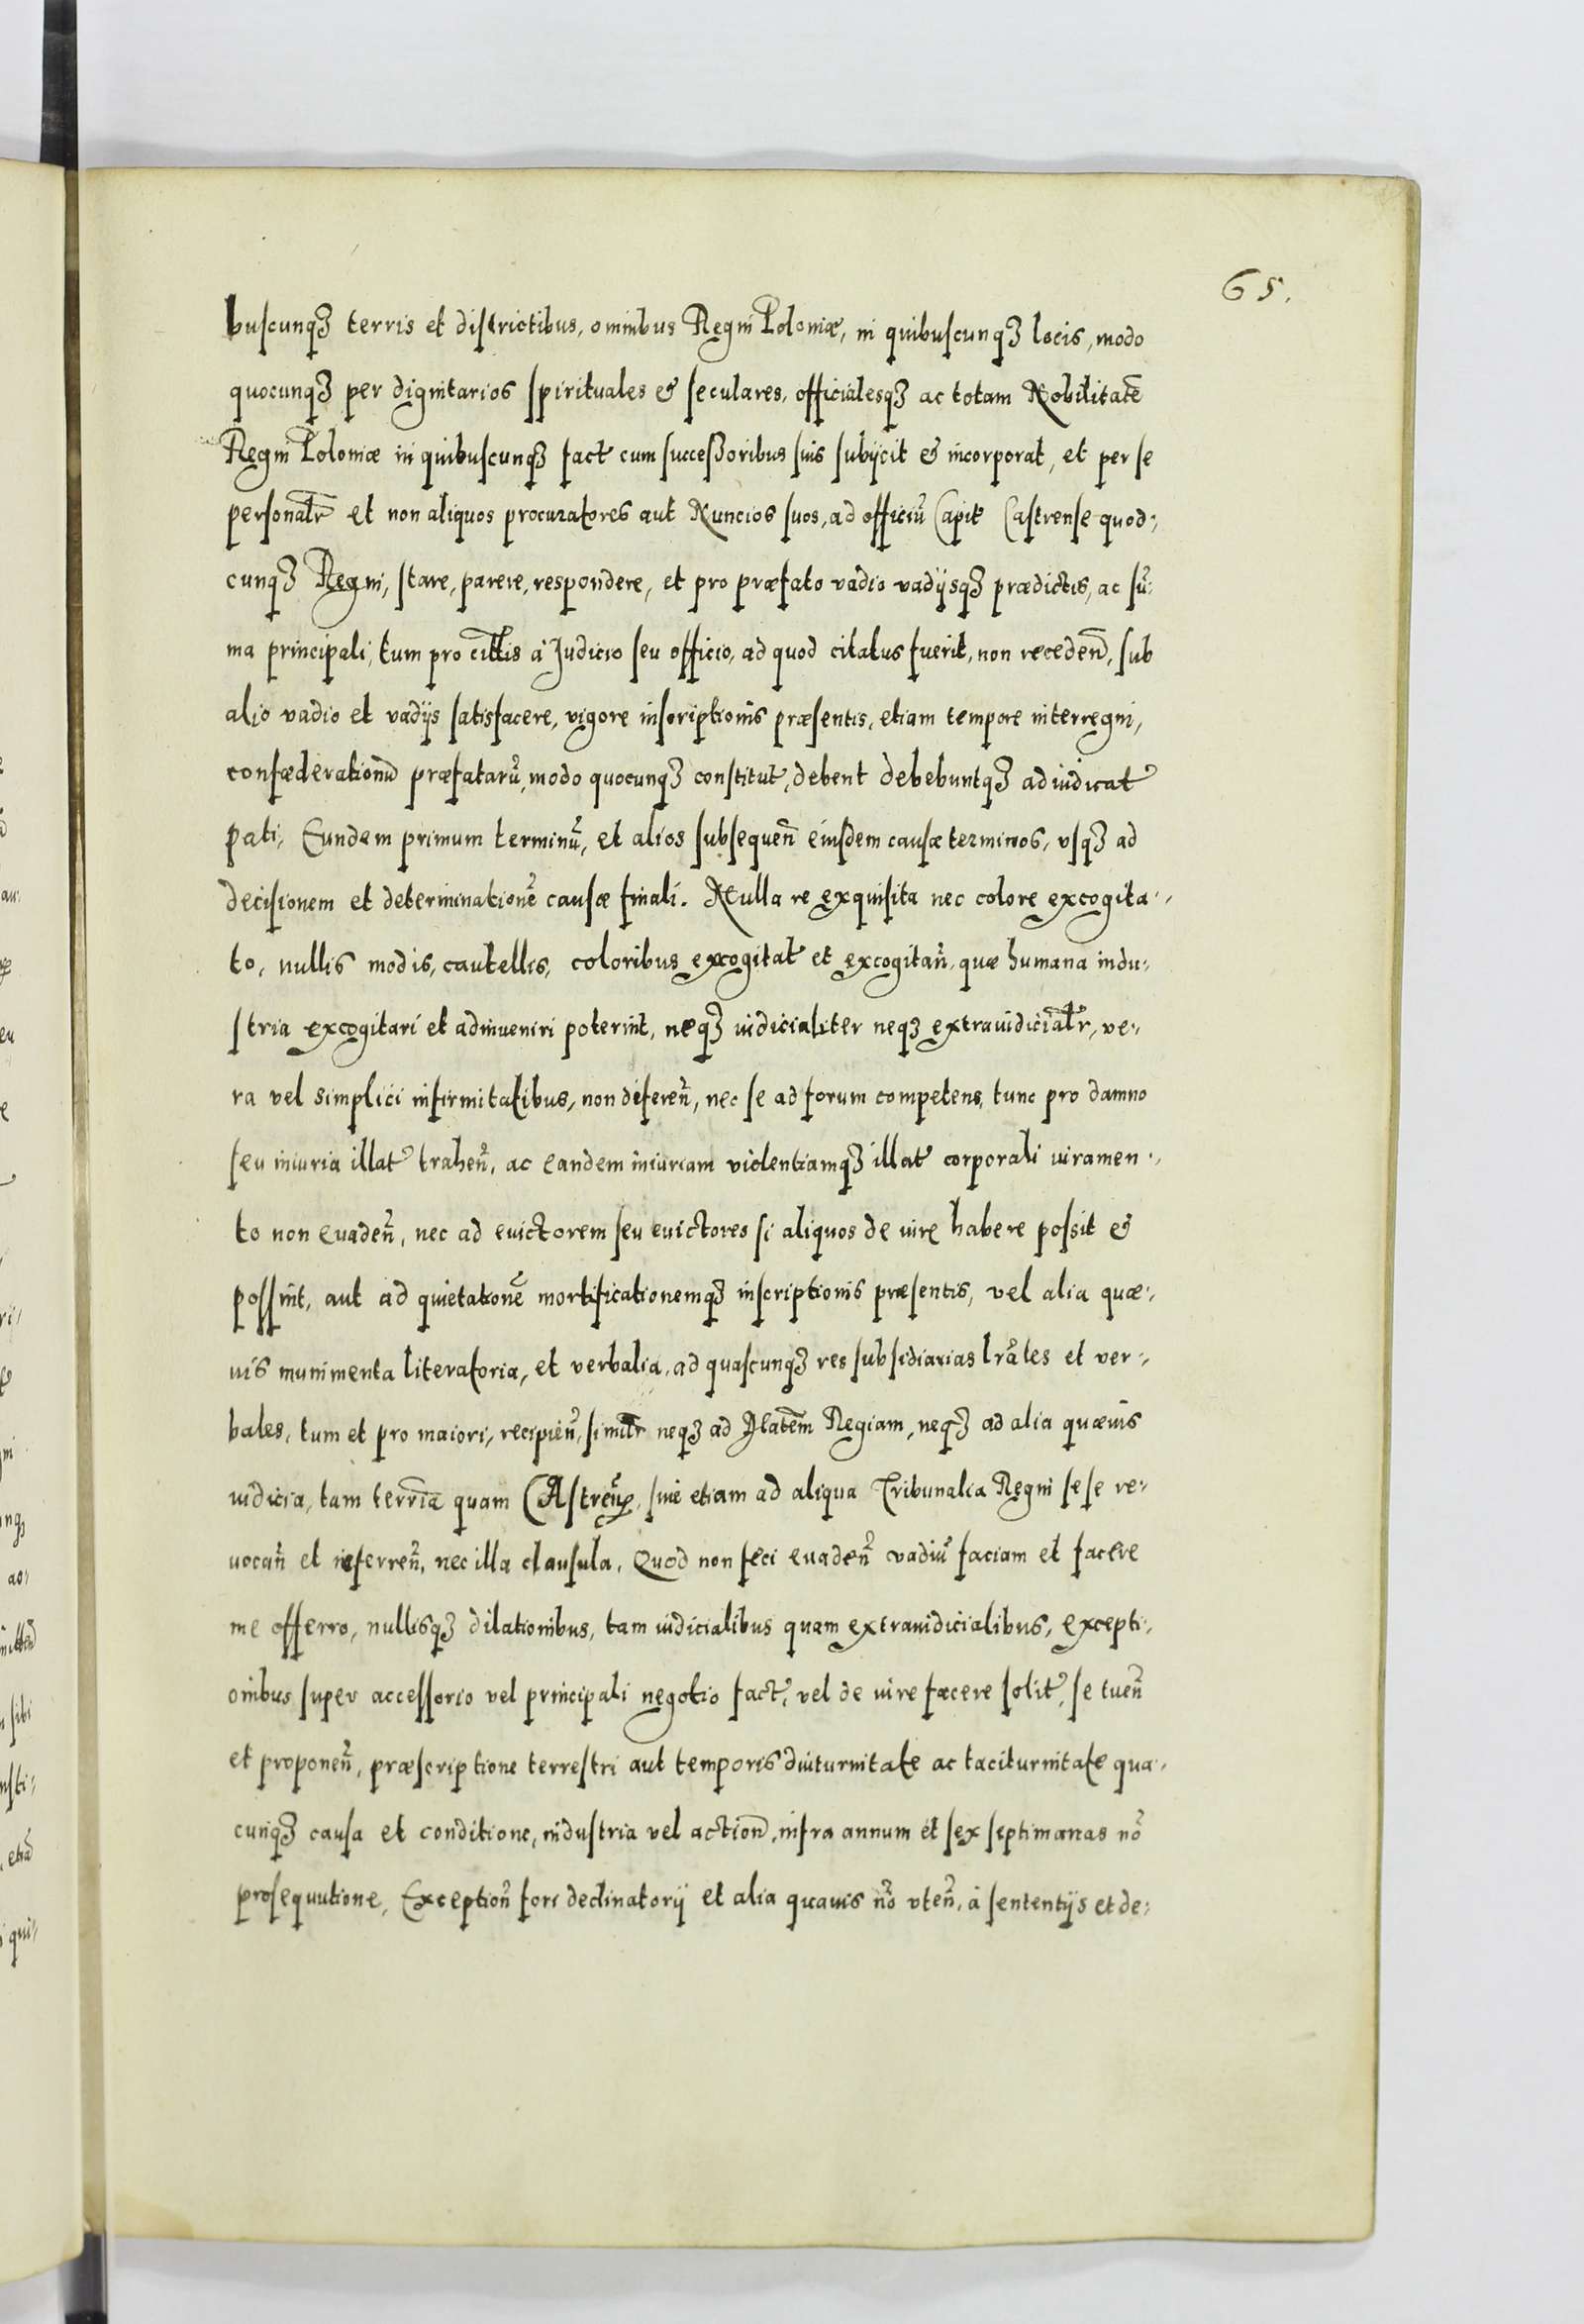 65.
buscunqꝫ terris et districtibus, omnibus Regni Poloniæ, in quibuscunqꝫ locis, modo
quocunqꝫ per dignitarios spirituales & seculares, officialesqꝫ ac totam Nobilitatē
Regni Poloniæ in quibuscunqꝫ fact cum successoribus suis subijcit & incorporat, et per se
personalr̄ et non aliquos procuratores aut Nuncios suos, ad officiū Capit Castrense quod-
cunqꝫ Regni, stare, parere, respondere, et pro præfato vadio vadijsqꝫ prædictis, ac sū-
ma principali, tum pro à Judicio seu officio, ad quod citatus fuerit, non recedeñ, sub
alio vadio et vadijs satisfacere, vigore inscriptionis præsentis, etiam tempore interregni,
confœderationū præfatarū, modo quocunqꝫ constitut, debent debebuntqꝫ adiudicat
pati, Eundem primum terminū, et alios subsequeñ eiusdem causæ terminos, vsqꝫ ad
decisionem et determinationē causæ finali. Nulla re exquisita nec colore excogita-
to, nullis modis, cautellis, coloribus excogitat et excogitañ, quæ humana indu-
stria excogitari et adinueniri poterint, neqꝫ iudicialiter neqꝫ extraiudicialr̄, ve-
ra vel simplici infirmitatibus, non difereñ, nec se ad forum competens, tunc pro damno
seu iniuria illat traheñ, ac eandem iniuriam violentiamqꝫ illat corporali iuramen-
to non euadeñ, nec ad euictorem seu euictores si aliquos de iure habere possit &
possint, aut ad quietationē mortificationemqꝫ inscriptionis præsentis, vel alia quæ-
uis munimenta literatoria, et verbalia, ad quascunqꝫ res subsidiarias lr̄ales et ver-
bales, tum et pro maiori, recipieñ, similr̄ neqꝫ ad Mtatem Regiam, neqꝫ ad alia quæuis
iudicia, tam terrīa quam siue etiam ad aliqua Tribunalia Regni sese re-
uocañ et referreñ, nec illa clausula, Quod non feci euadeñ vadiū faciam et facere
me offerro, nullisqꝫ dilationibus, tam iudicialibus quam extraiudicialibus, excepti-
onibus super accessorio vel principali negotio fact, vel de iure facere solit, se tueñ
et proponeñ, præscriptione terrestri aut temporis diuturnitate ac taciturnitate qua-
cunqꝫ causa et conditione, industria vel actioñ, infra annum et sex septimanas nō
prosequutione, Exceptioñ fori declinatorij et alia quauis nō vteñ, à sententijs et de-